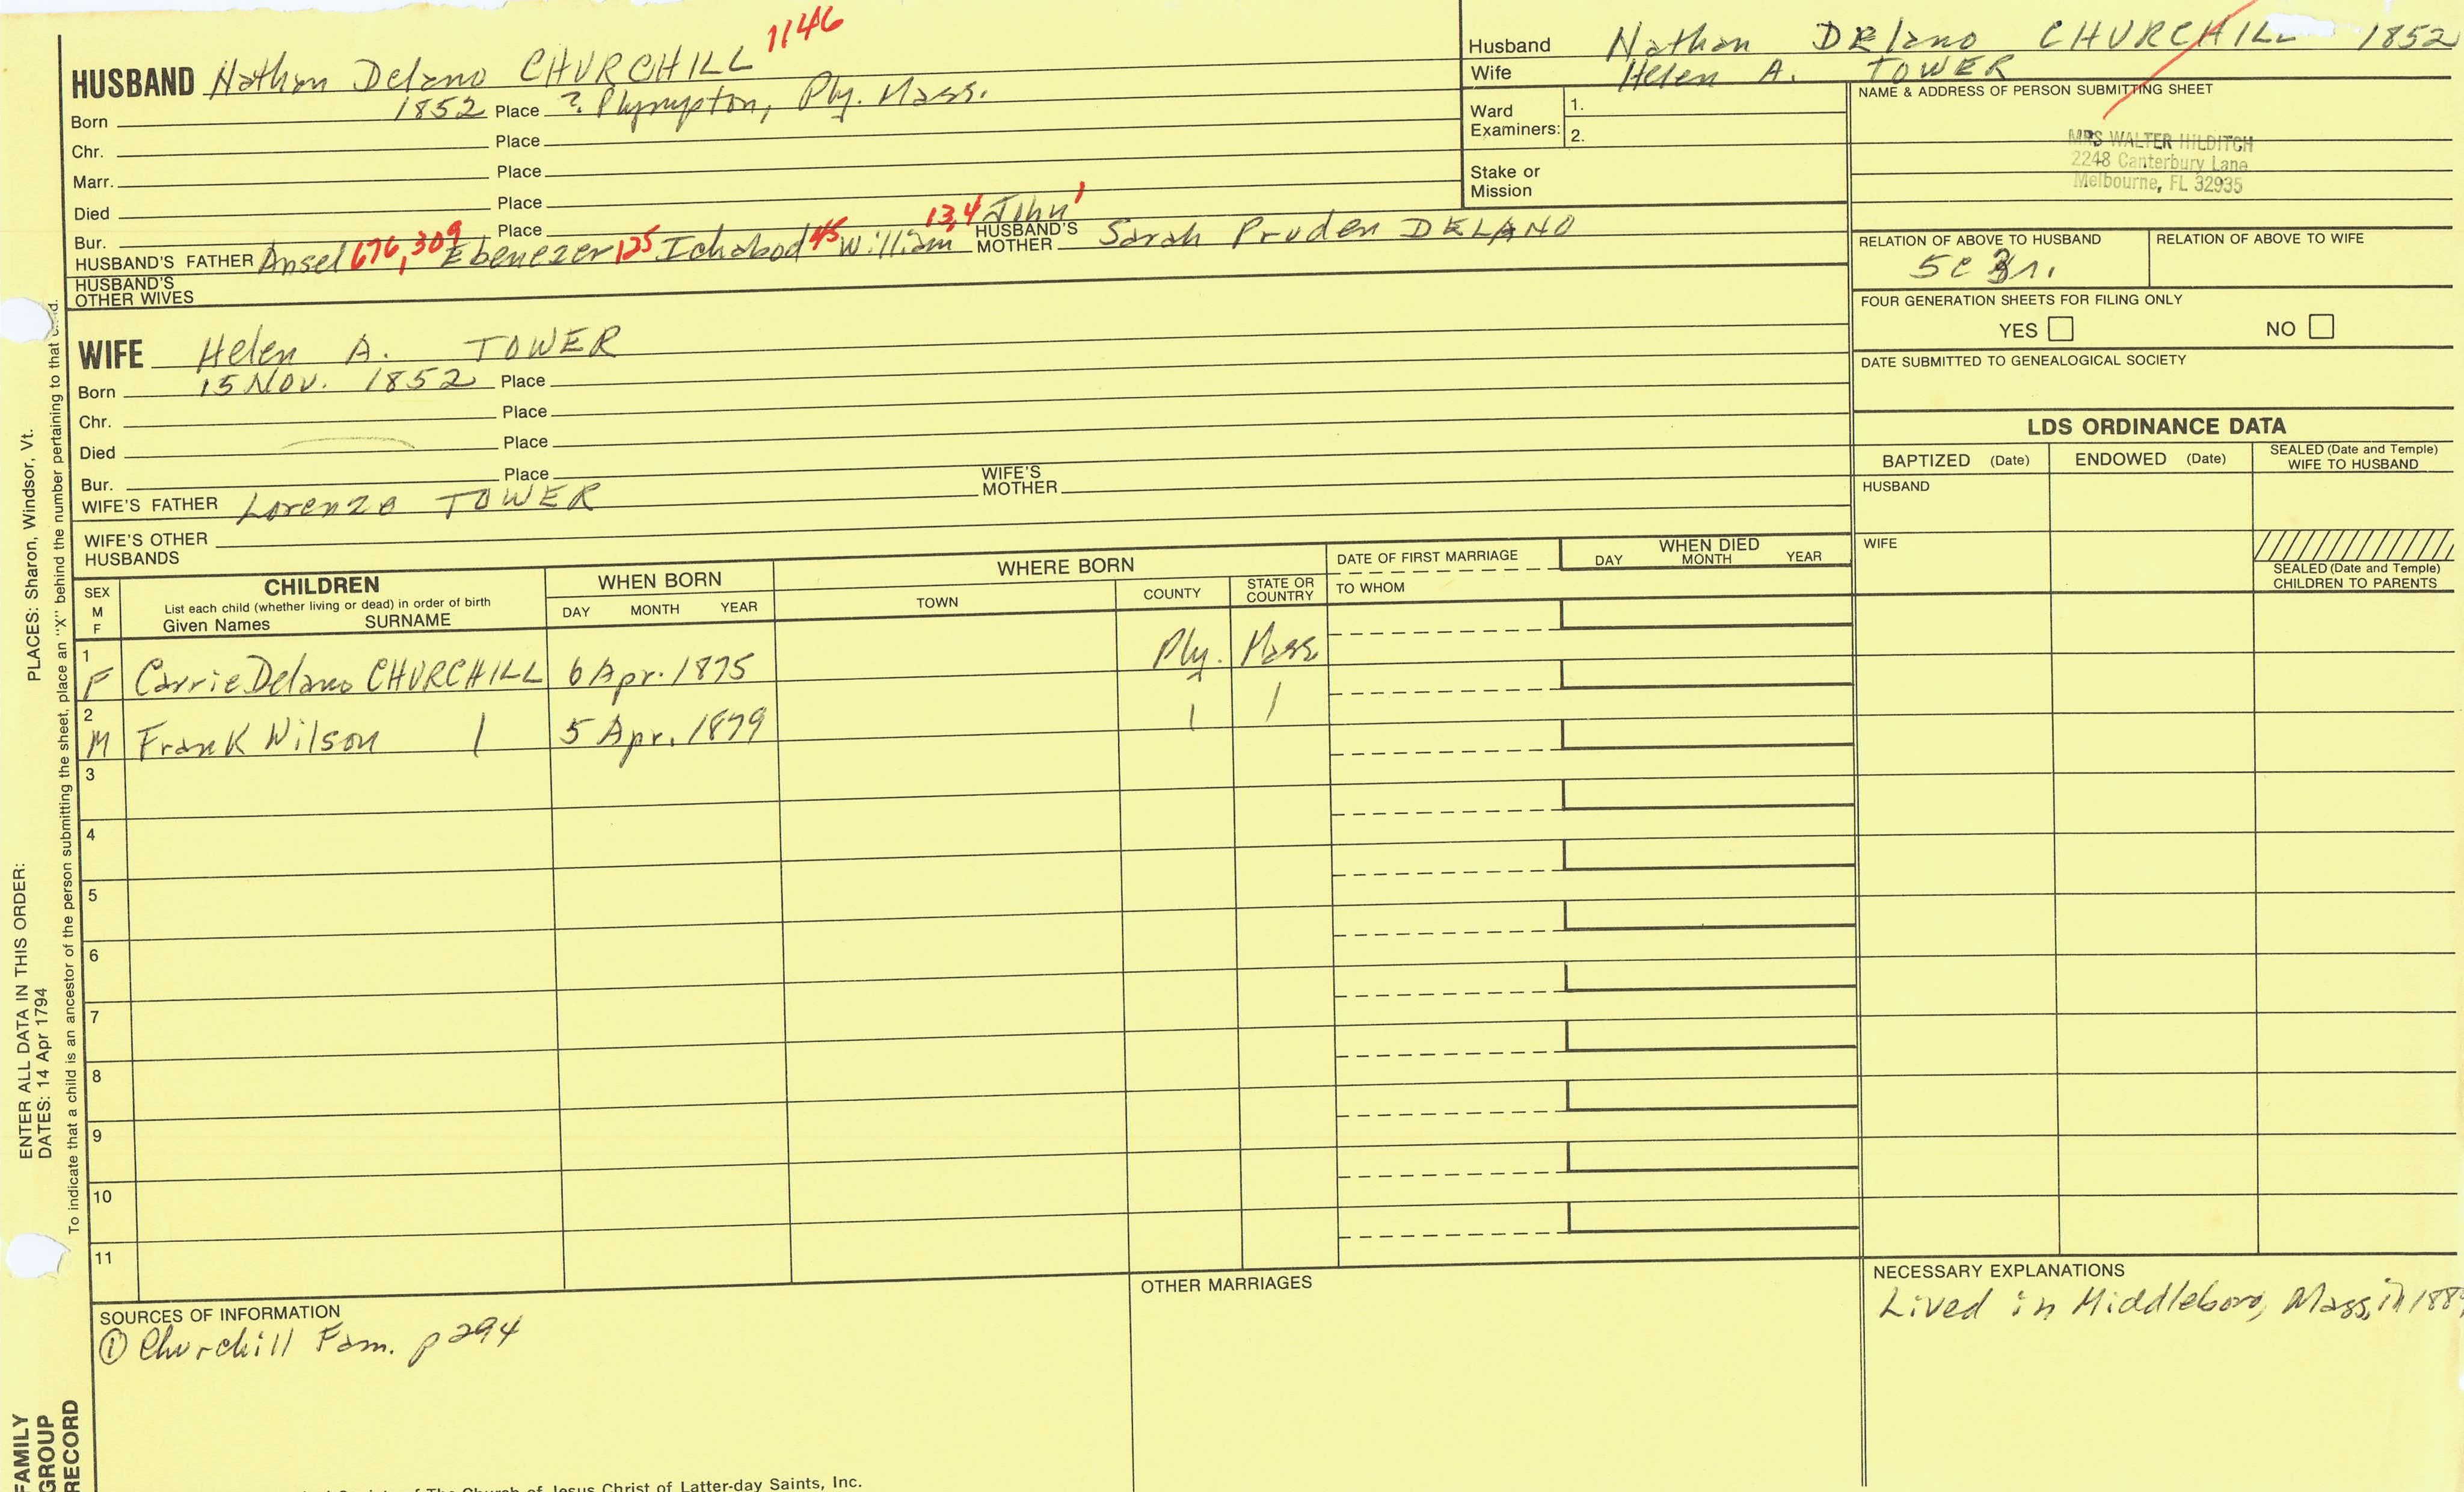 HUSBAND Nathan Delano CHURCHILL 1146
Born 1852 Place ? Plympton, Ply. Mass.
Chr. Place
Marr. Place
Died Place
Bur. Place
HUSBAND'S FATHER Ansel 676, 309 Ebenezer 125 Ichabod 45 William 13,4 John 1 HUSBAND'S MOTHER Sarah Pruden DELANO
HUSBAND'S OTHER WIVES
Husband Nathan DElano CHURCHILL 1852
Wife Helen A. TOWER
Ward Examiners: 1. 2.
Stake or Mission
NAME & ADDRESS OF PERSON SUBMITTING SHEET
MRS WALTER HILDITCH
2248 Canterbury Lane
Melbourne, FL 32935
RELATION OF ABOVE TO HUSBAND RELATION OF ABOVE TO WIFE
FOUR GENERATION SHEETS FOR FILING ONLY
YES NO
DATE SUBMITTED TO GENEALOGICAL SOCIETY
WIFE Helen A. TOWER
Born 15 Nov. 1852 Place
Chr. Place
Died Place
Bur. Place
WIFE'S FATHER Lorenzo TOWER WIFE'S MOTHER
WIFE'S OTHER HUSBANDS
LDS ORDINANCE DATA
BAPTIZED (Date) ENDOWED (Date) SEALED (Date and Temple) WIFE TO HUSBAND
HUSBAND
WIFE
SEALED (Date and Temple)
CHILDREN TO PARENTS
SEX M F
CHILDREN
List each child (whether living or dead) in order of birth
Given Names SURNAME
WHEN BORN
DAY MONTH YEAR
WHERE BORN
TOWN COUNTY STATE OR COUNTRY
DATE OF FIRST MARRIAGE
TO WHOM
WHEN DIED
DAY MONTH YEAR
1 F Carrie Delano CHURCHILL 6 Apr. 1875 Ply. Mass
2 M Frank Wilson | 5 Apr. 1879 | |
3
4
5
6
7
8
9
10
11
SOURCES OF INFORMATION
① Churchill Fam. p 294
OTHER MARRIAGES
NECESSARY EXPLANATIONS
Lived in Middleboro, Mass, in
of The Church of Jesus Christ of Latter-day Saints, Inc.
PLACES: Sharon, Windsor, Vt.
ENTER ALL DATA IN THIS ORDER:
DATES: 14 Apr 1794
To indicate that a child is an ancestor of the person submitting the sheet, place an "X" behind the number pertaining to that child.
FAMILY
GROUP
RECORD